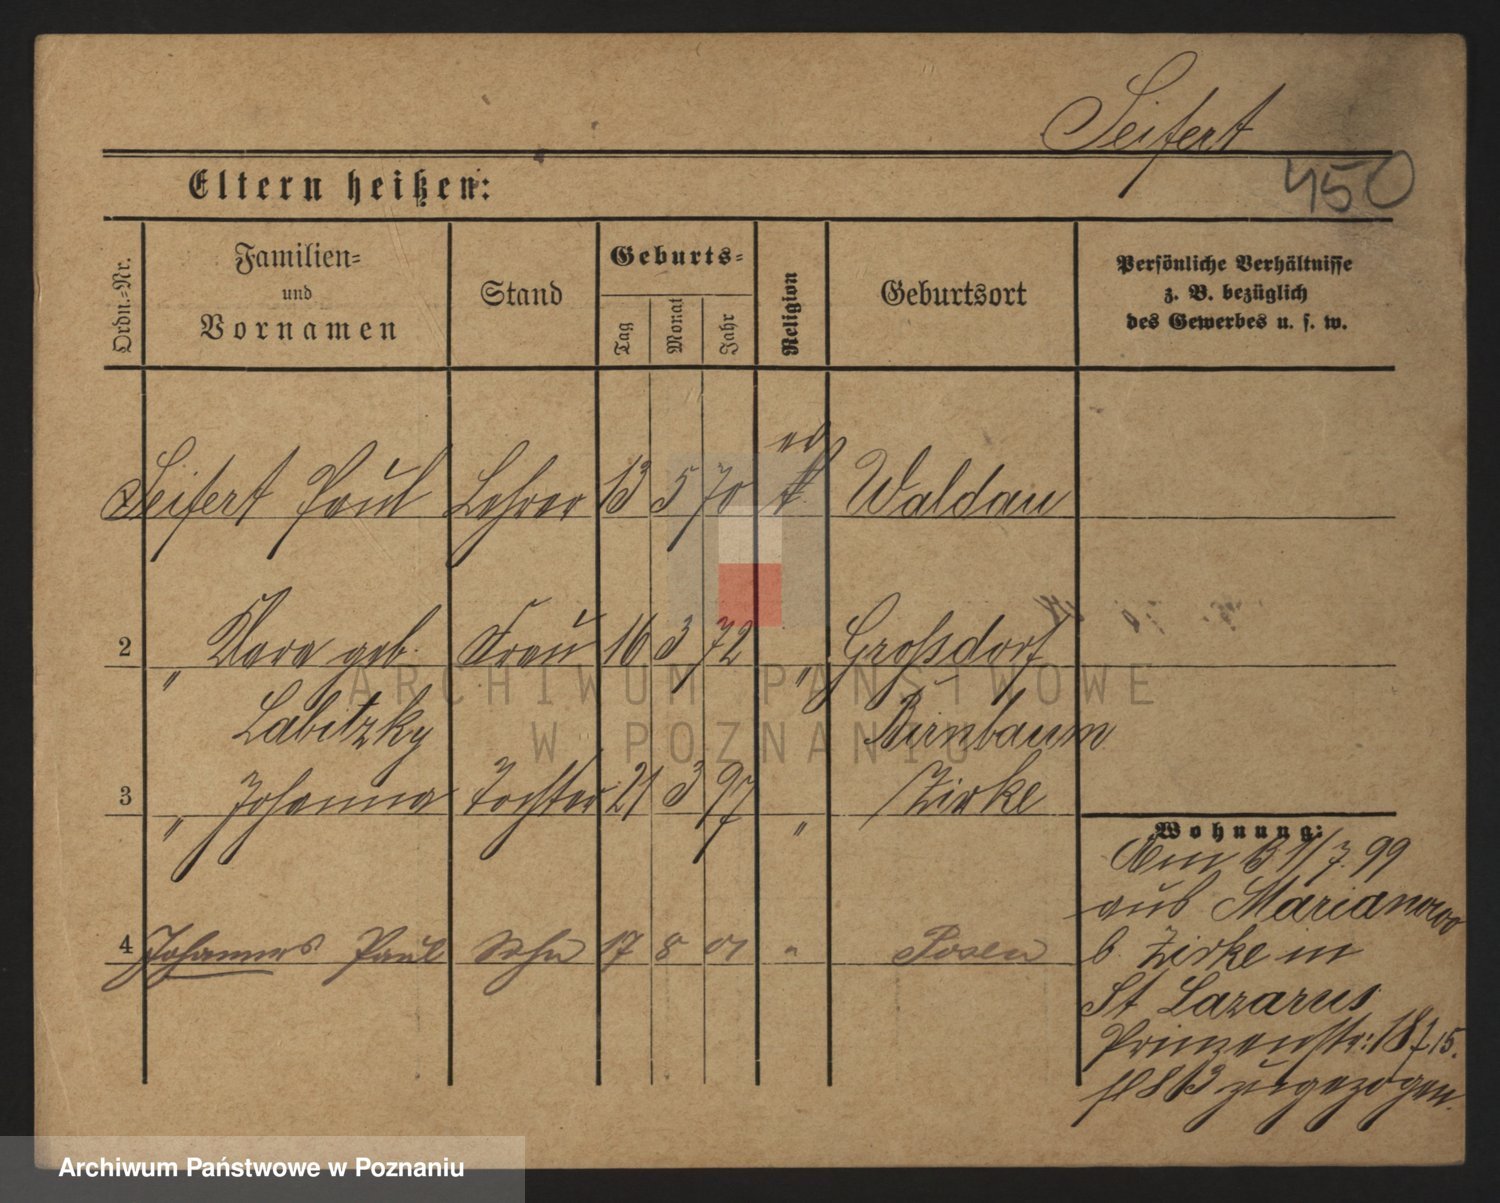 Seifert
Eltern heißen: 450
Ordn.-Nr.
Familien-
und
Vornamen
Stand
Geburts-
Tag
Monat
Jahr
Religion
Geburtsort
Persönliche Verhältnisse
z. B. bezüglich
des Gewerbes u. s. w.
ev
Seifert Paul Lehrer 13 5 70 Waldau
2 " Klara geb. Frau 16 3 72 " Großdorf
Labitzky Birnbaum
3 " Johanna Tochter 21 3 97 " Zirke
4 Johannes Paul Sohn 17 8 01 " Posen
Wohnung:
Am 7 99
aus Marianowo
b. Zirke in
St Lazarus
Prinzenstr:
zugezogen.
ARCHIWUM PAŃSTWOWE
W POZNANIU
Archiwum Państwowe w Poznaniu